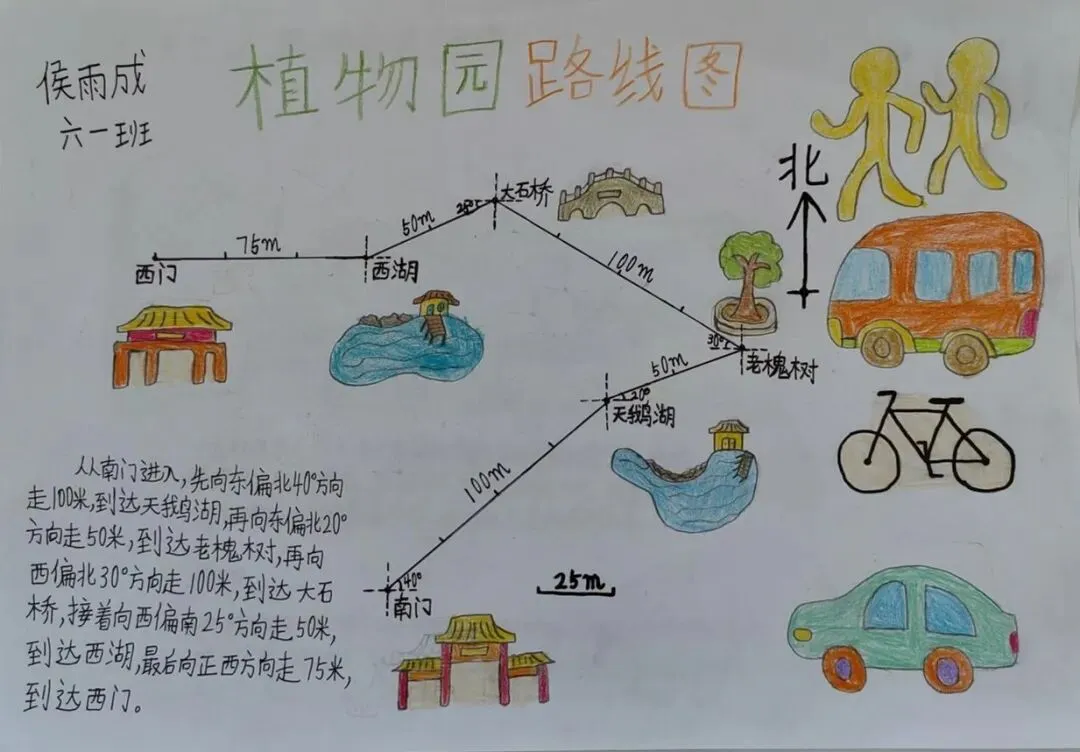 植物园路线图
侯雨成
六一班
北
大石桥
25°
50m
75m
西门
西湖
100m
30°
老槐树
50m
20°
天鹅湖
100m
40°
南门
25m
从南门进入,先向东偏北40°方向
走100米,到达天鹅湖,再向东偏北20°
方向走50米,到达老槐树,再向
西偏北30°方向走100米,到达大石
桥,接着向西偏南25°方向走50米,
到达西湖,最后向正西方向走75米,
到达西门。